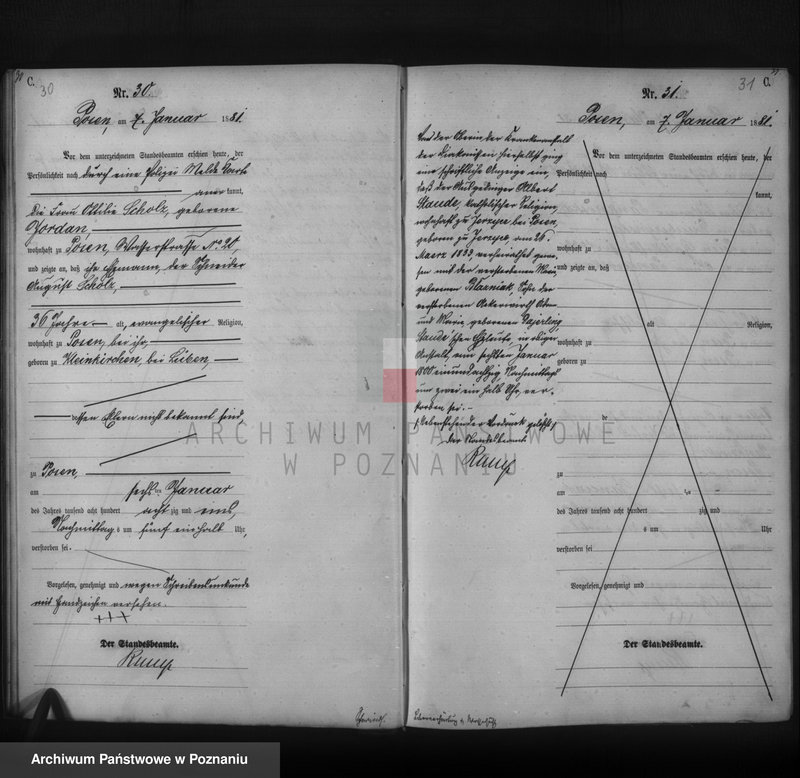 30
C.
30
Nr. 30.
Posen, am 7. Januar 1881.
Vor dem unterzeichneten Standesbeamten erschien heute, der
Persönlichkeit nach durch eine Polizei Melde Karte
anerkannt,
die Frau Ottilie Scholz, geborene
Jordan,
wohnhaft zu Posen, Wasserstrasse No 20
und zeigte an, daß ihr Ehemann, der Schneider
August Scholz,
36 Jahre alt, evangelischer Religion,
wohnhaft zu Posen, bei ihr,
geboren zu Kleinkirchen, bei Lüben,
dessen Eltern nicht bekannt sind,
zu Posen,
am sechsten Januar
des Jahres tausend acht hundert achtzig und eins,
Nachmittags um fünf einhalb Uhr,
verstorben sei.
Vorgelesen, genehmigt und wegen Schreibensunkunde
mit Handzeichen versehen.
+++
Der Standesbeamte.
31
C.
Nr. 31.
Posen, am 7. Januar 1881.
Von der Oberin der Krankenanstalt
der Diakonissen hierselbst ging
eine schriftliche Anzeige ein,
daß der Ausgedinger Albert
Staude, katholischer Religion,
wohnhaft zu Jerzyce bei Posen,
geboren zu Jerzyce, am 26.
Maerz 1833, verheirathet gewe-
sen mit der verstorbenen Mar.
geborenen Blazniak, Sohn der
verstorbenen Ackerwirth
und Marie geborenen
Staude'schen Eheleute, in obiger
Anstalt, am sechsten Januar
1800 einundachtzig, Nachmittags
um zwei ein halb Uhr, ver-
storben sei.
Nebenstehender Vordruck gelöscht
Der Standesbeamte
Vor dem unterzeichneten Standesbeamten erschien heute, der
Persönlichkeit nach
kannt,
wohnhaft zu
und zeigte an, daß
alt Religion,
wohnhaft zu
geboren zu
de
zu
am ten
des Jahres tausend acht hundert zig und
s um Uhr
verstorben sei
Vorgelesen, genehmigt und
Der Standesbeamte.
ARCHIWUM PAŃSTWOWE
W POZNANIU
Archiwum Państwowe w Poznaniu